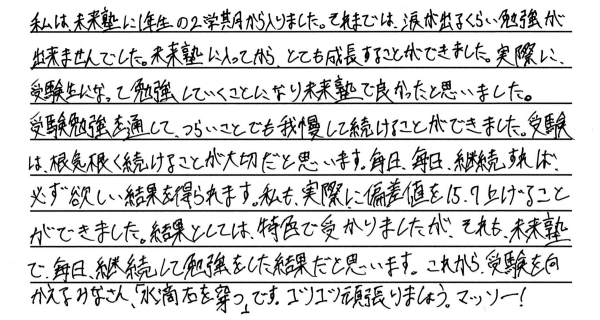 私は、未来塾に1年生の2学期から入りました。それまでは、涙が出るくらい勉強が
出来ませんでした。未来塾に入ってから、とても成長することができました。実際に、
受験生になって勉強していくことになり未来塾で良かったと思いました。
受験勉強を通して、つらいことでも我慢して続けることができました。受験
は、根気根く続けることが大切だと思います。毎日、毎日、継続すれば、
必ず欲しい結果を得られます。私も、実際に偏差値を15.7上げること
ができました。結果としては、特色で受かりましたが、それも、未来塾
で、毎日、継続して勉強をした結果だと思います。これから、受験を向
かえるみなさん、「水滴石を穿つ」です。コツコツ頑張りましょう。マッソー!